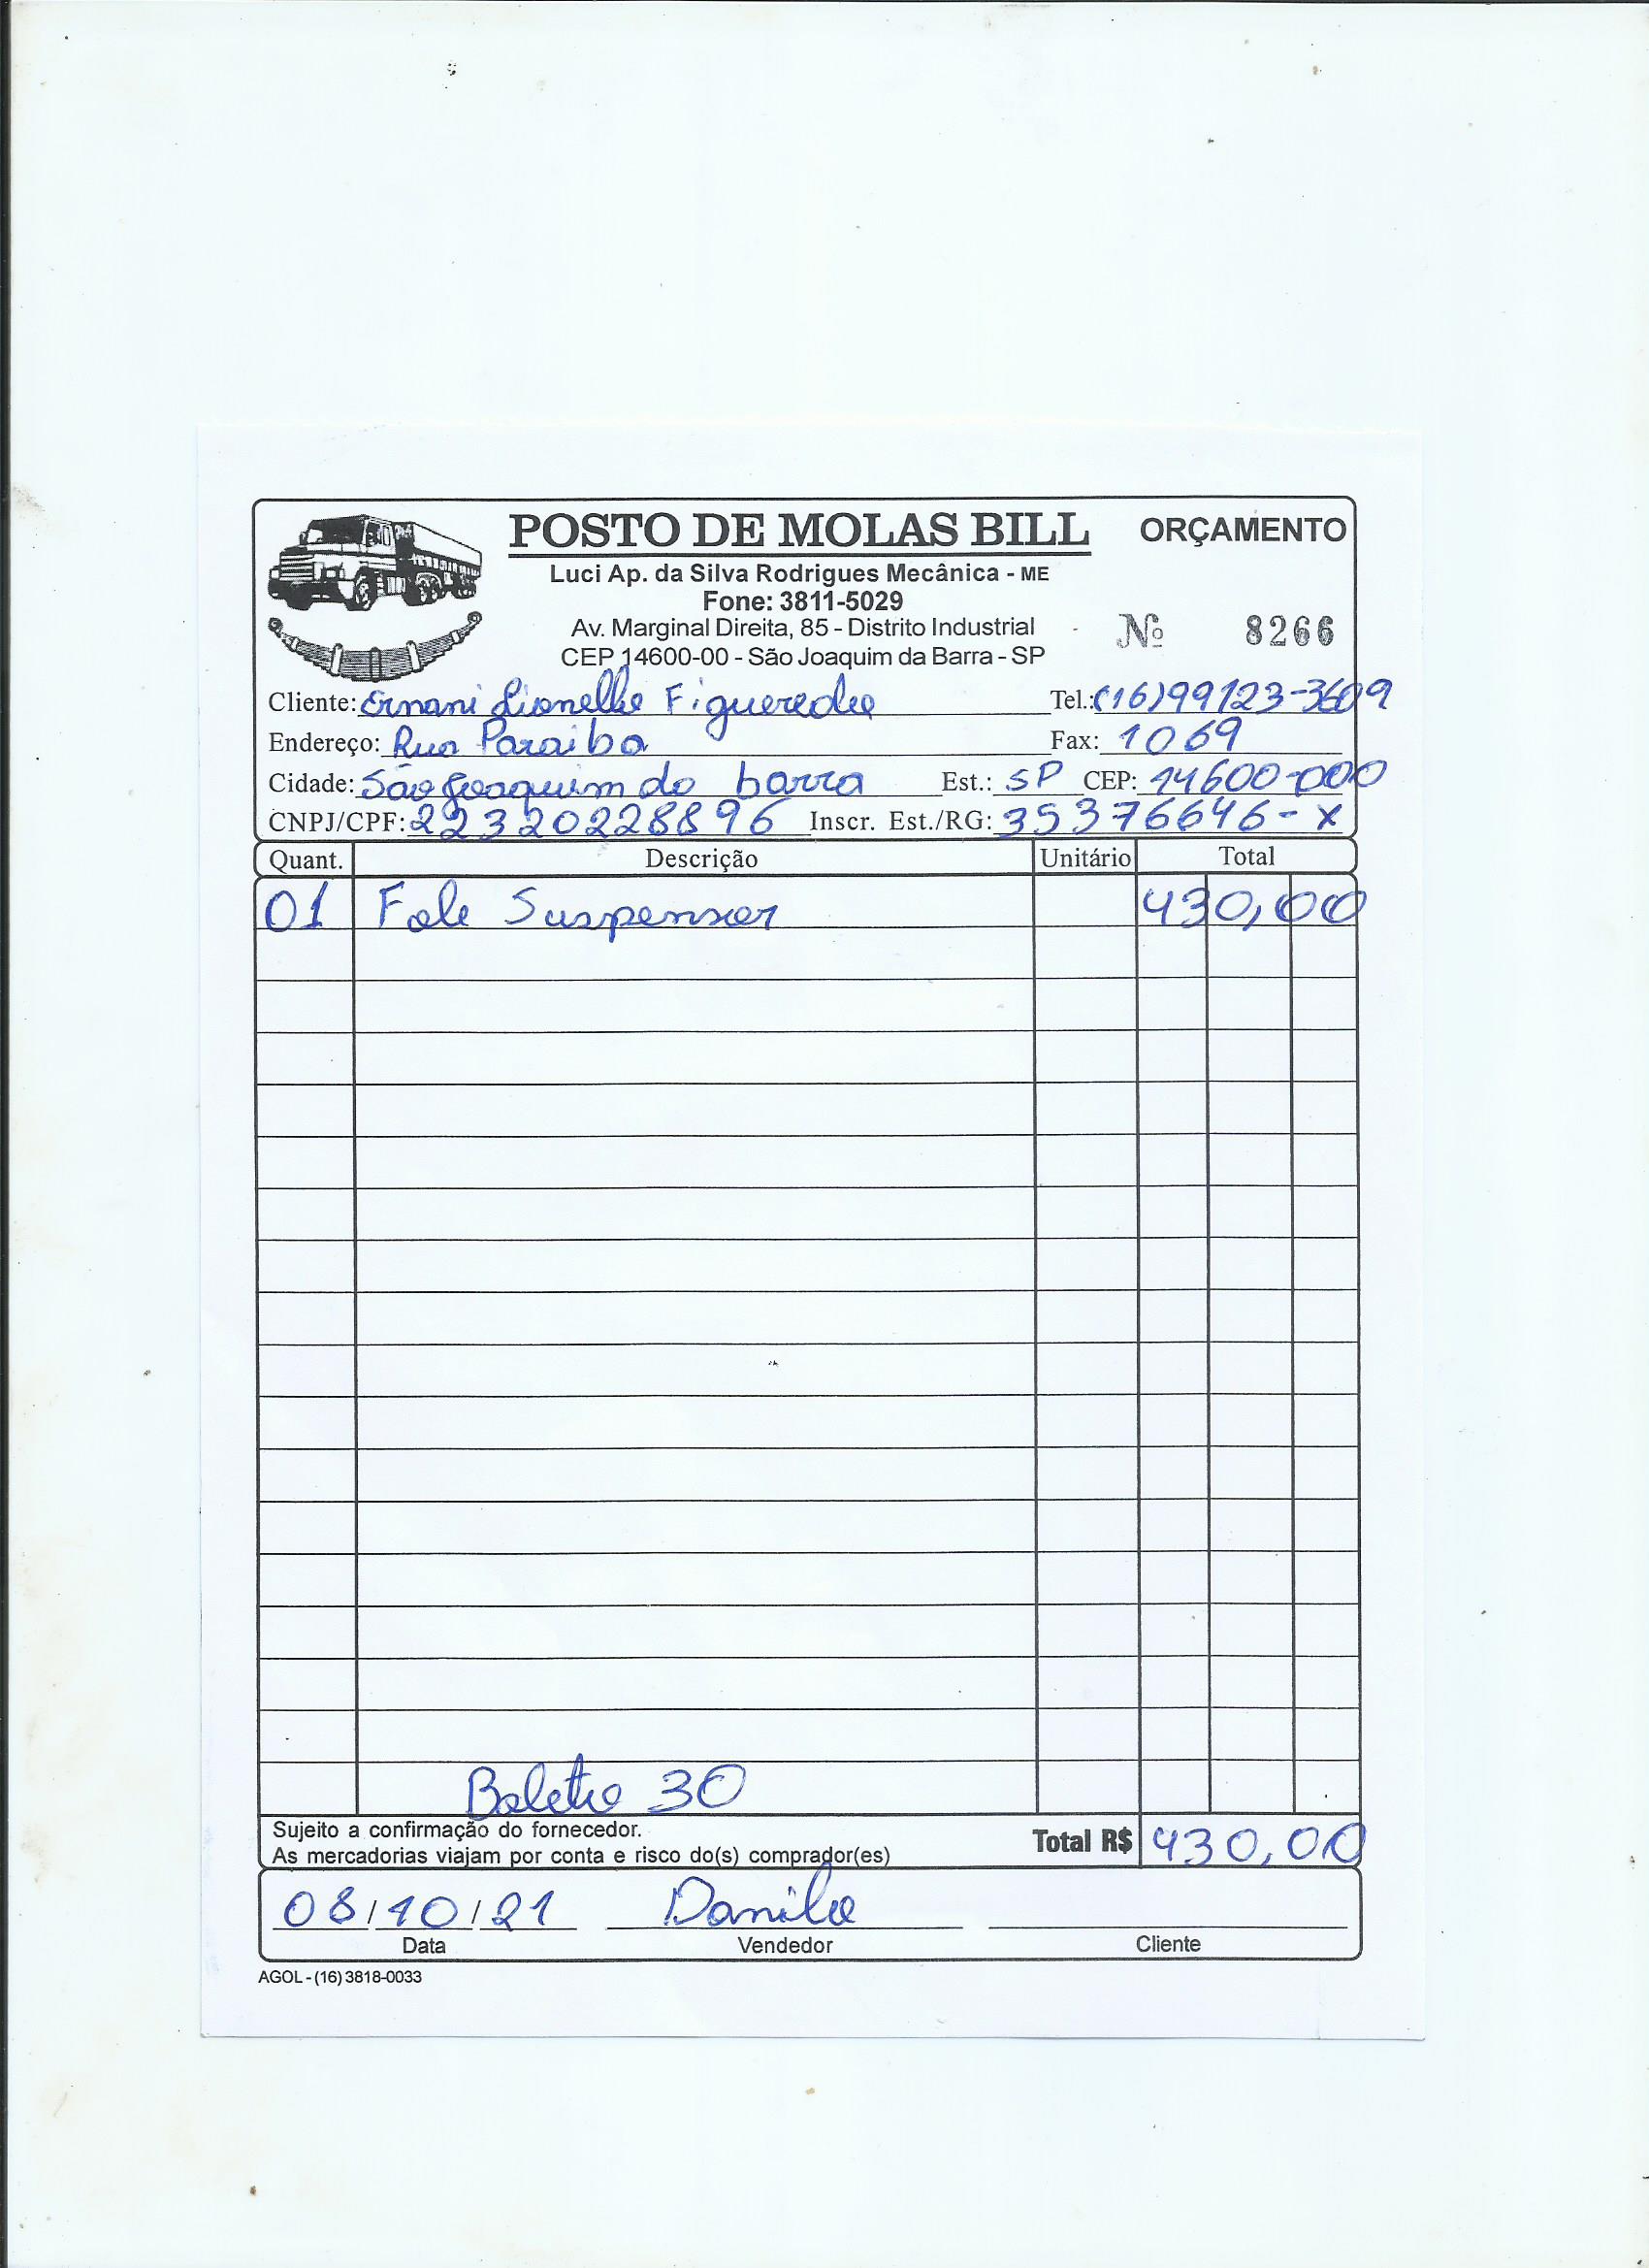 POSTO DE MOLAS BILL ORÇAMENTO
Luci Ap. da Silva Rodrigues Mecânica - ME
Fone: 3811-5029
Av. Marginal Direita, 85 - Distrito Industrial
Nº 8266
CEP 14600-00 - São Joaquim da Barra - SP
Cliente: Ernani Lionello Figueredo Tel.: (16) 99123-3609
Endereço: Rua Paraiba Fax: 1069
Cidade: São Joaquim da barra Est.: SP CEP: 14600-000
CNPJ/CPF: 22320228896 Inscr. Est./RG: 35376646-X
Quant. Descrição Unitário Total
01 Fole Suspensor 430,00
Boleto 30
Sujeito a confirmação do fornecedor.
As mercadorias viajam por conta e risco do(s) comprador(es)
Total R$ 430,00
08/10/21 Danilo
Data Vendedor Cliente
AGOL - (16) 3818-0033